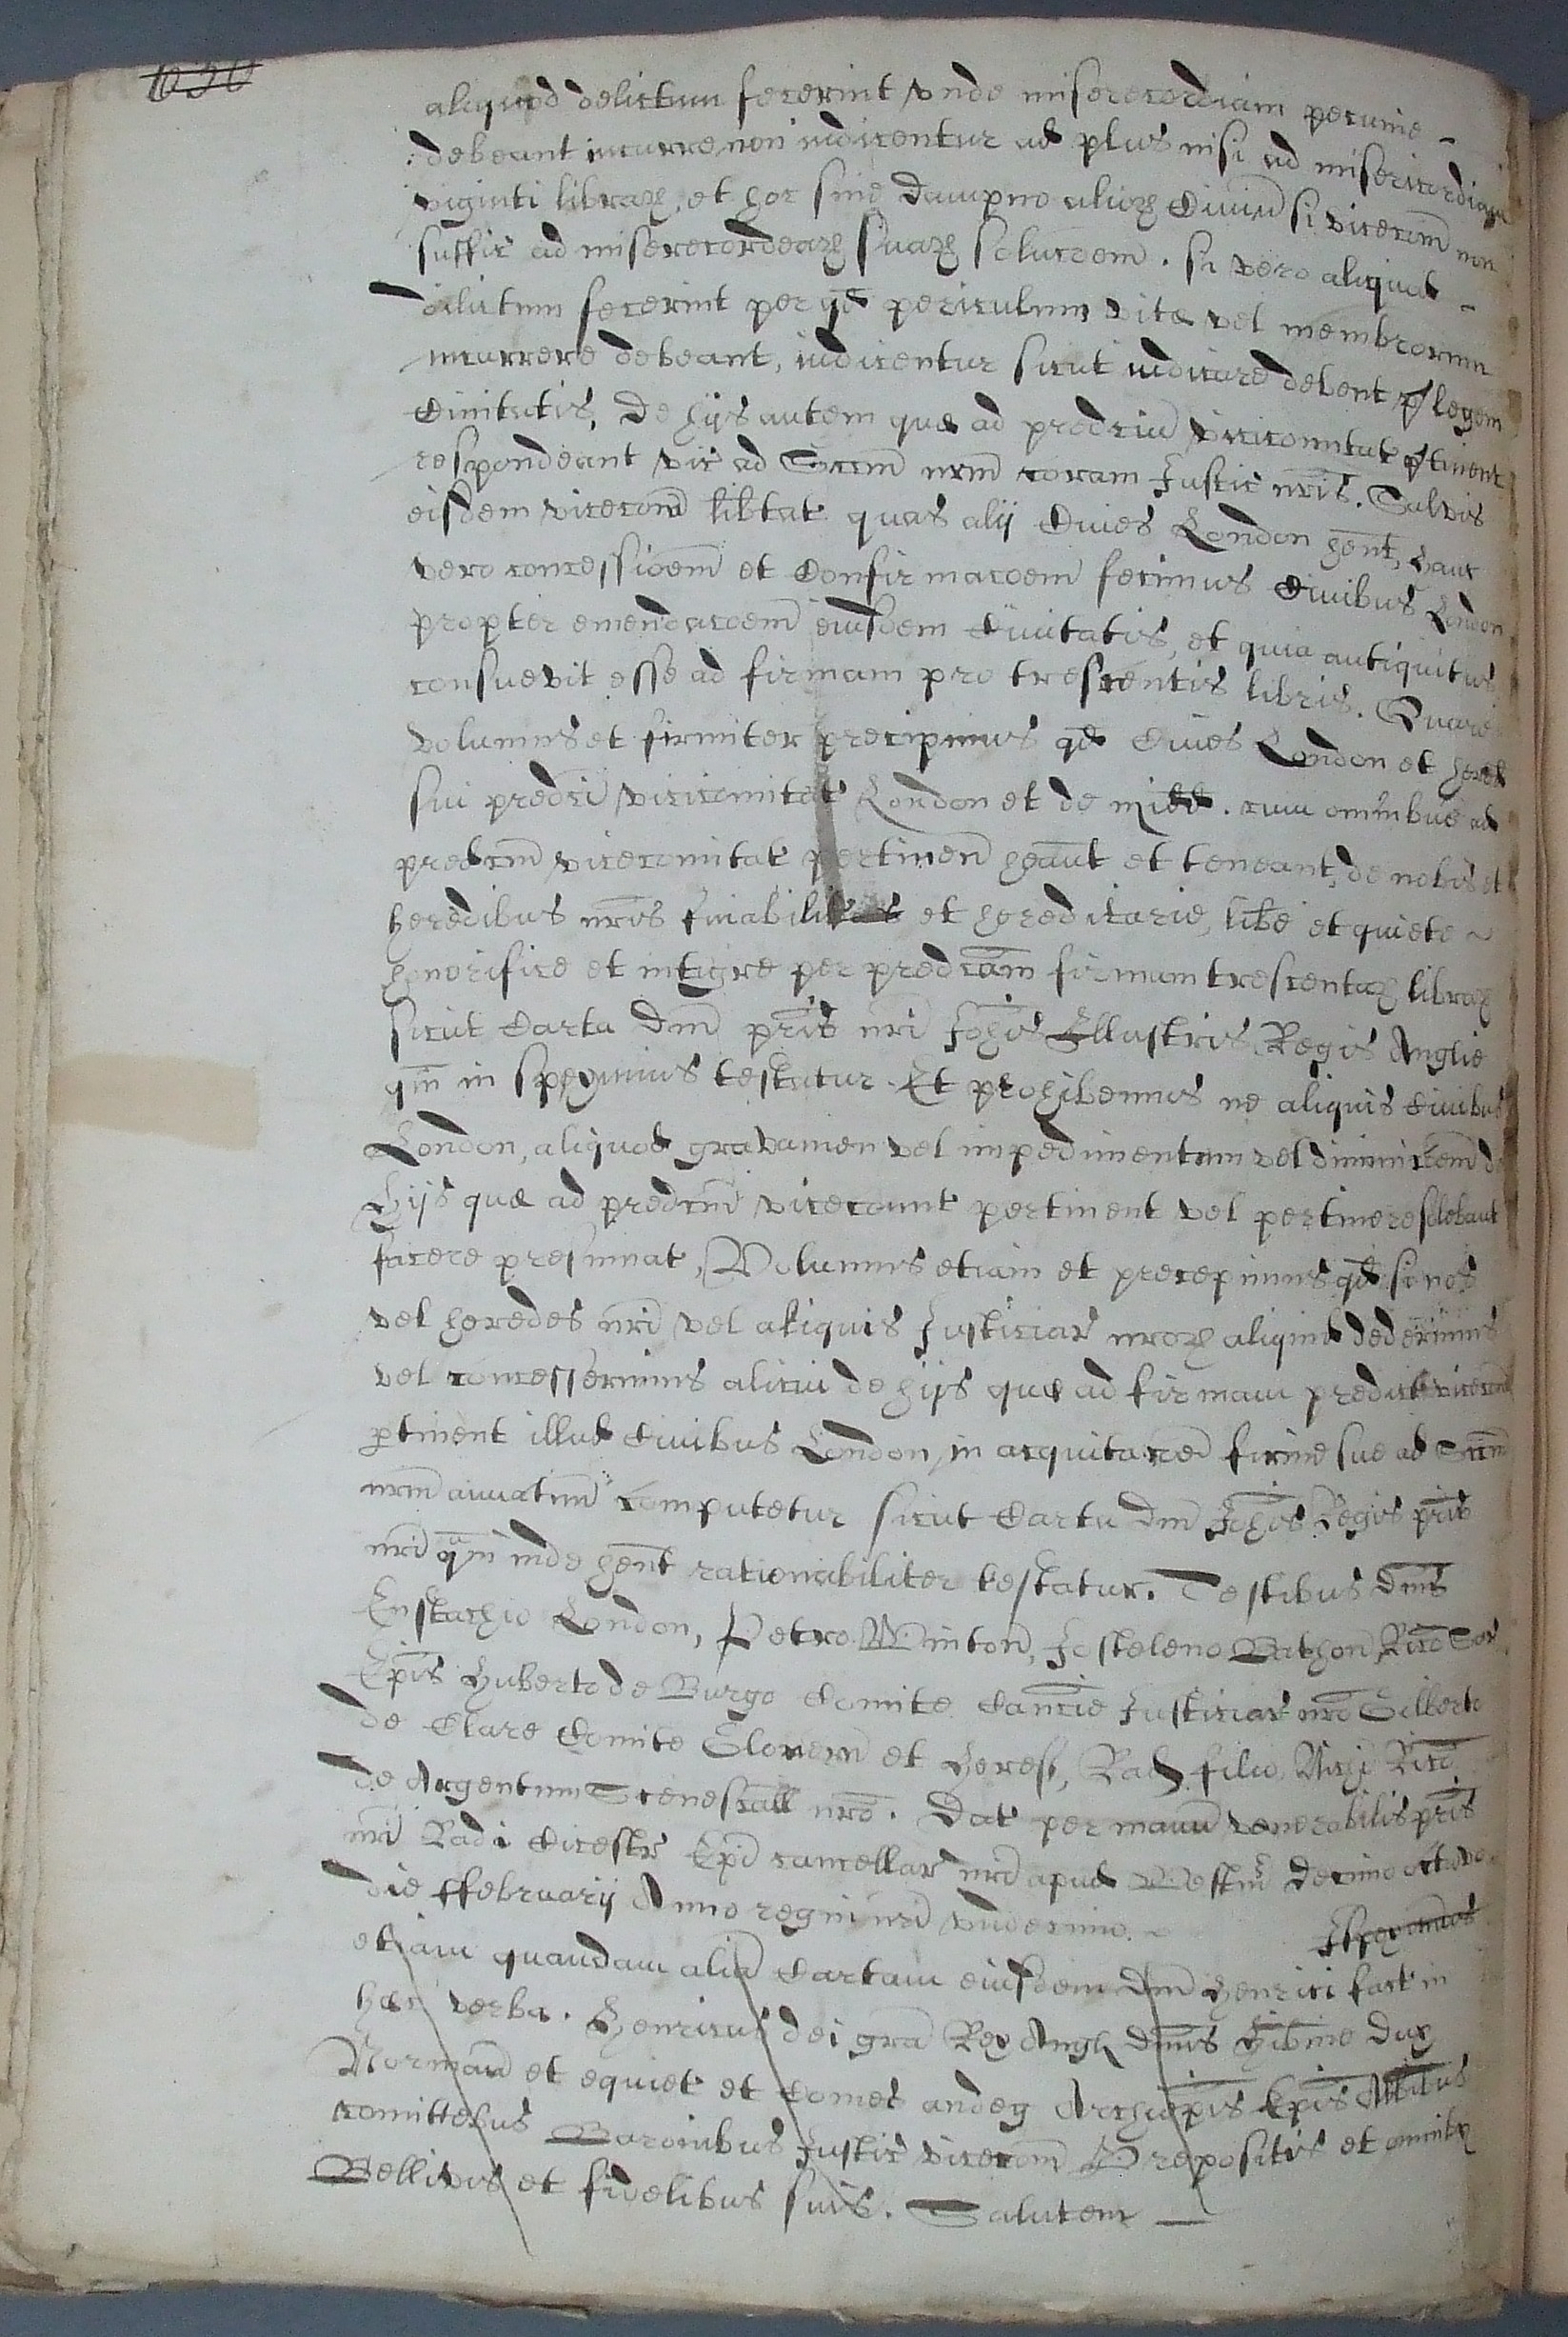 1630
aliquod delictum fecerint vnde miserecordiam pecunie -
debeant incurre, non iudicentur ad plus nisi ad misericordiam
viginti libraꝝ, et hoc sine Dampno alioꝝ Ciuiū si vicecom̄ non
suffic̄ ad miserecordeaꝝ suaꝝ soluc̄oem. si vero aliquod -
dilictum fecerint per qd̄ periculum vite vel membrorum
incurrere debeant, iudicentur sicut iudicare debent ꝑ legem
Ciuitatis, De hijs autem quæ ad predc̄iū vicicomitat̄ ꝑtinent
respondeant vic̄ ad Sccm̄ nr̄m coram Justic̄ nr̄is. Saluis
eisdem vicecom̄ lib̄tat̄ quas alij Ciues London hēnt, hanc
vero concessioēm et Confirmac̄oem fecimus Ciuibus London
propter emendac̄oem eiusdem Ciuitatis, et quia antiquitus
consuevit esse ad firmam pro trescentis libris. Quare
volumus et firmiter precipimus qd̄ Ciues London et hered̄
sui predc̄i vicicomitat̄ London et de midd̄. cum omnibus ad
predc̄m̄ vicecomitat̄ pertinen̄ hēant et teneant, de nobis et
heredibus nr̄is finabiliter et hereditarie, lib̄e et quiete ~
honorifice et integre per predc̄am firmam trescentaꝝ libraꝝ
sicut Carta dm̄ pr̄is nr̄i Joh̄is Illustris Regis Anglie
qm̄ in speximus testatur. Et prohibemus ne aliquis Ciuibus
London, aliquod gravamen vel impedimentum vel diminuc̄oem de
Hijs quæ ad predc̄m̄ vicecomit̄ pertinent vel pertinere solebant
facere presumat, Volumus etiam et precepimus qd̄ si nos
vel heredes nr̄i vel aliquis Justiciar̄ nr̄oꝝ aliquid dederimus
vel concesserimus alicui de hijs quæ ad firmam predict̄ vicecom̄
ꝑtinent illud Ciuibus London, in acquitanc̄ firme sue ad Sccm̄
nr̄m annatim computetur sicut Carta dm̄ Joh̄is Regis pr̄is
nr̄i qm̄ inde hēnt rationabiliter testatur. Testibus dm̄s
Eustachio London, Petro Winton, Josteleno Bathon, Ric̄o Sar̄
Epīs Huberto de Burgo Comite Cancie Justiciar̄ nr̄o Gilberto
de Clare Comite Glouern̄ et Heref, Rad̄. filio Nich̄i Ric̄o
de Argentum Scenescall nr̄o. Dat̄ per manū venerabilis pr̄is
nr̄i Radi Cicestr̄ Ep̄i cancellar̄ nr̄i apud Westm̄ Decimo octavo
die ffebruarij Anno regni nr̄i vndecimo. ~ Inspeximus
etiam quandam aliā Cartam eiusdem dm̄ Henrici fact̄ in
hæc verba. Henricus dei gra Rex Angl̄ dm̄s Hib̄nie Dux
Normand̄ et equiet̄ et Comes andeg Archiep̄is Ep̄is Abb̄tibus
comittebus Baronibus Justic̄ vicecom̄ Prepositis et omnibꝫ
Bellivis et fidelibus suis. Salutem —